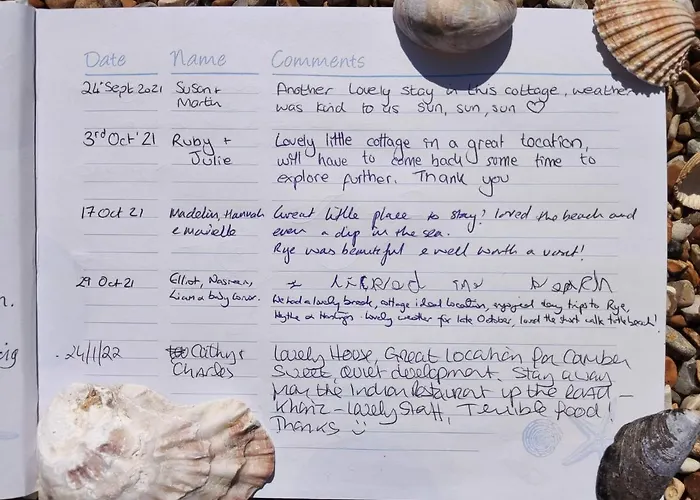 Date Name Comments
24 Sept 2021 Susan + Martin
Another lovely stay in this cottage, weather
was kind to us sun, sun, sun ♡
3rd Oct '21 Ruby + Julie
Lovely little cottage in a great location,
will have to come back some time to
explore further. Thank you
17 Oct 21 Madelin, Hannah
Great little place to stay! loved the beach and
even a dip in the sea.
Rye was beautiful & well worth a visit!
29 Oct 21 Elliot,
We had a lovely break, cottage ideal location, enjoyed day trips to Rye,
Hythe & Hastings. Lovely weather for late October, loved the short walk to the beach!
24/1/22 Cathy + Charles
lovely House, Great location for Camber
Quiet development. Stay away
from the Indian restaurant up the road –
lovely Staff, Terrible food!
Thanks
n.